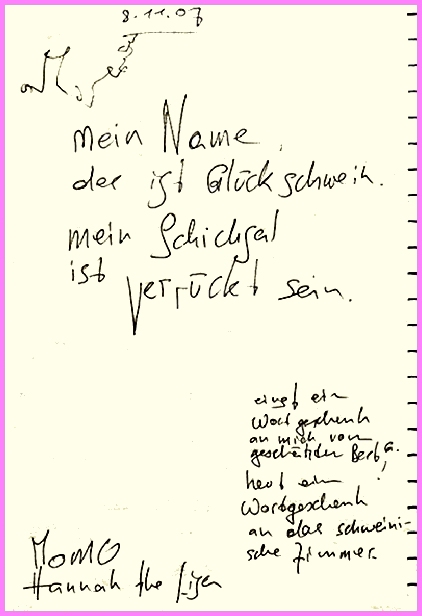 8.11.07
mein Name,
der ist Glückschwein.
mein Schicksal
ist
verrückt sein.
einst ein
Wortgeschenk
an mich von
geschätzter Bert G.
heut ein !
Wortgeschenk
an das schweini-
sche Zimmer.
MOMO
Hannah the